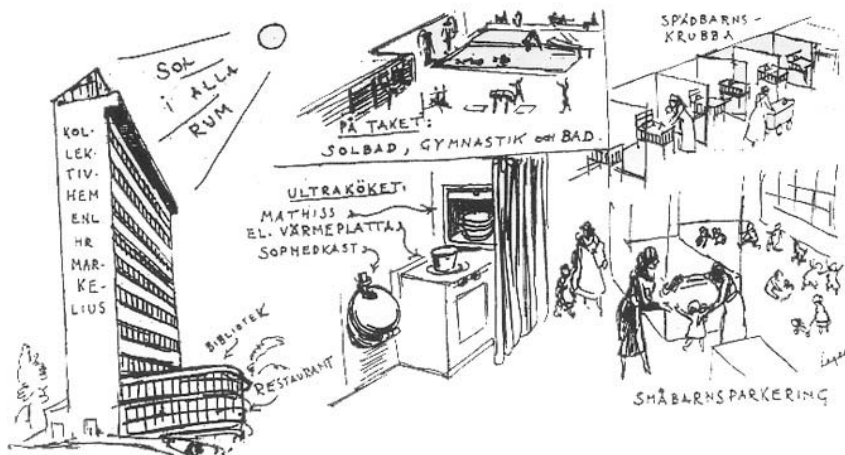 SOL
I ALLA
RUM
KOL-
LEKTIV-
HEM
ENL
HR
MAR-
KE-
LIUS
BIBLIOTEK
RESTAURANT
PÅ TAKET:
SOLBAD, GYMNASTIK OCH BAD.
ULTRAKÖKET:
MATHISS
EL. VÄRMEPLATTA
SOPNEDKAST
SPÄDBARNS-
KRUBBA
SMÅBARNSPARKERING